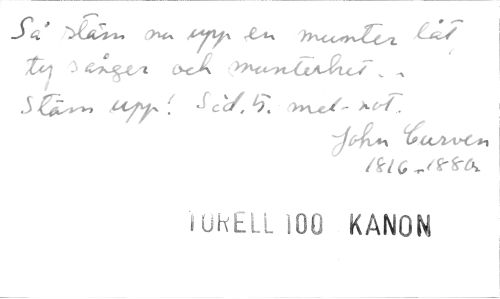 Så stäm nu upp en munter låt,
ty sånger och munterhet..
Stäm upp! Sid. 5. mel-not.
John Curven
1816-1880
TORELL 100 KANON